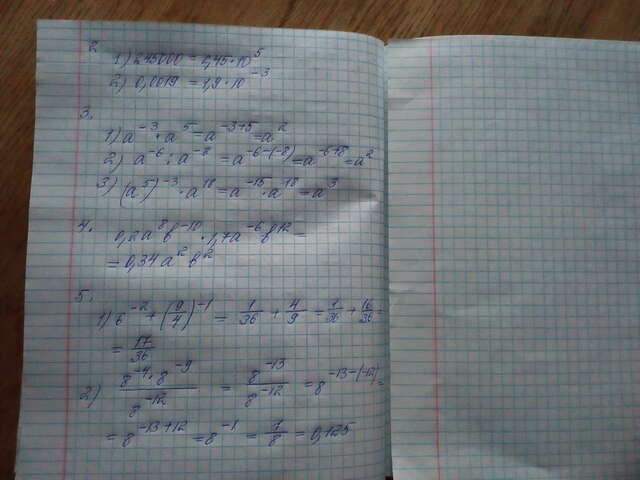 2
1) 245000 = 2,45·10⁵
2) 0,0019 = 1,9·10⁻³
3.
1) a⁻³·a⁵ = a⁻³⁺⁵ = a²
2) a⁻⁶ : a⁻⁸ = a⁻⁶⁻⁽⁻⁸⁾ = a⁻⁶⁺⁸ = a²
3) (a⁵)⁻³·a¹⁸ = a⁻¹⁵·a¹⁸ = a³
4.
0,2a⁸b⁻¹⁰·1,7a⁻⁶b¹² =
= 0,34a²b²
5.
1) 6⁻² + (9/4)⁻¹ = 1/36 + 4/9 = 1/36 + 16/36 =
= 17/36
2) 8⁻⁴·8⁻⁹/8⁻¹² = 8⁻¹³/8⁻¹² = 8⁻¹³⁻⁽⁻¹²⁾ =
= 8⁻¹³⁺¹² = 8⁻¹ = 1/8 = 0,125